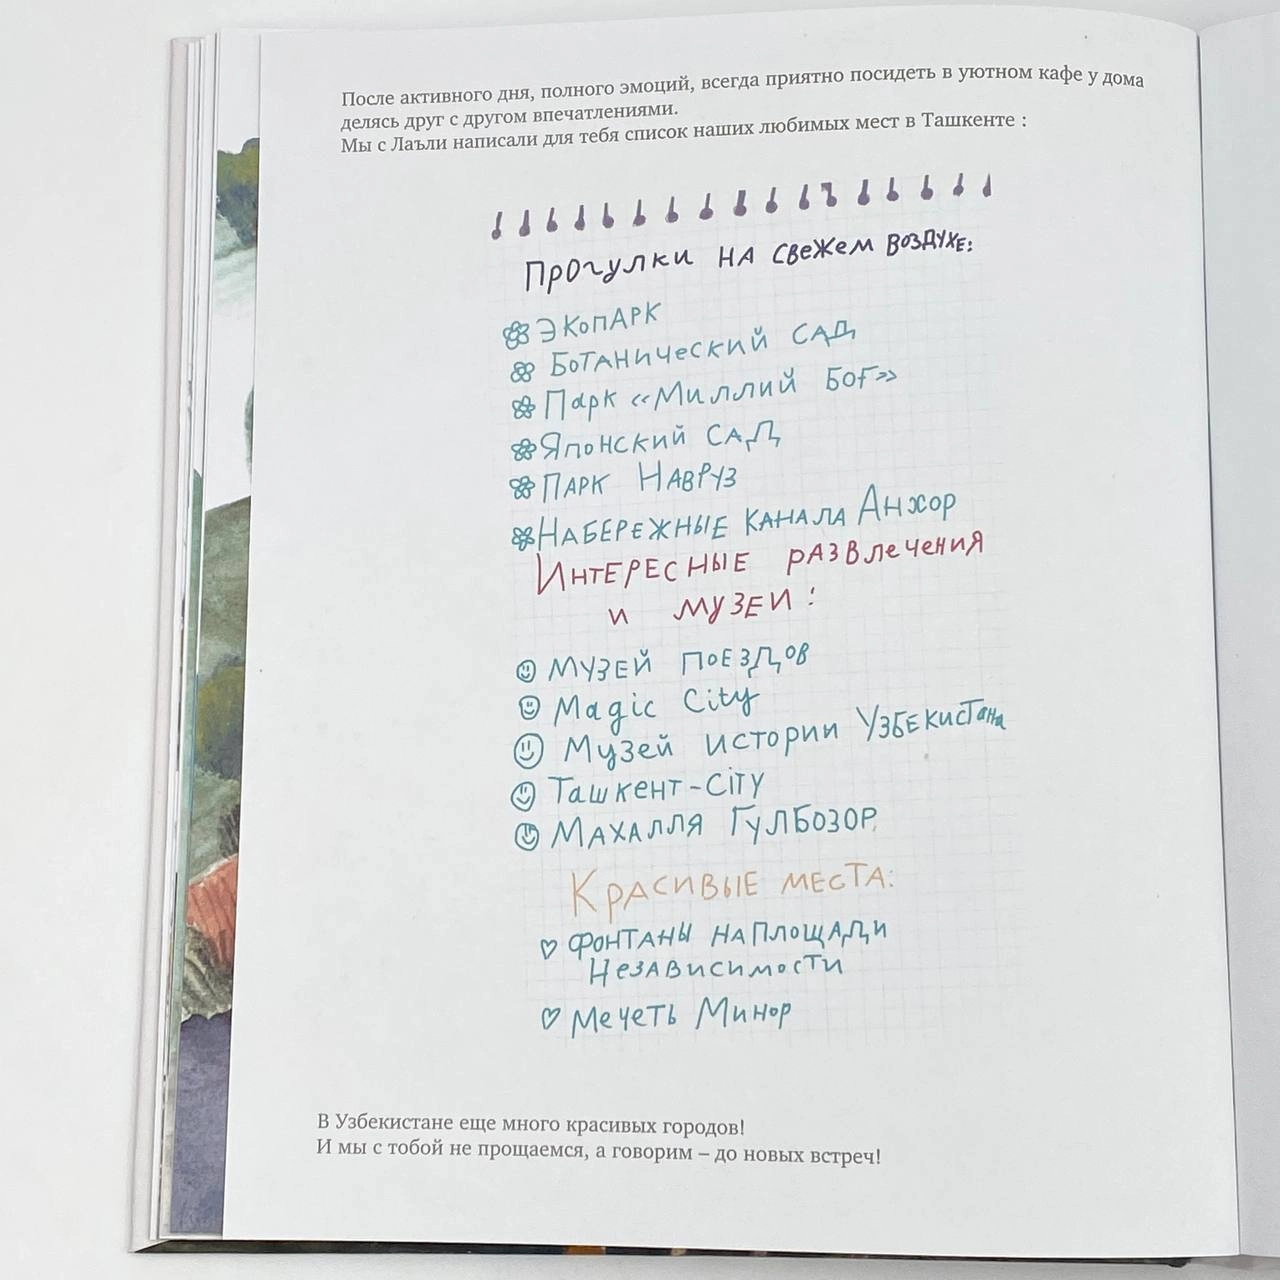 После активного дня, полного эмоций, всегда приятно посидеть в уютном кафе у дома
делясь друг с другом впечатлениями.
Мы с Лаъли написали для тебя список наших любимых мест в Ташкенте :
Прогулки на свежем воздухе:
Экопарк
Ботанический сад
Парк «Миллий Боғ»
Японский сад
Парк Навруз
Набережные канала Анхор
Интересные развлечения
и музеи:
Музей поездов
Magic City
Музей истории Узбекистана
Ташкент-City
Махалля Гулбозор
Красивые места:
Фонтаны на площади
Независимости
Мечеть Минор
В Узбекистане еще много красивых городов!
И мы с тобой не прощаемся, а говорим – до новых встреч!